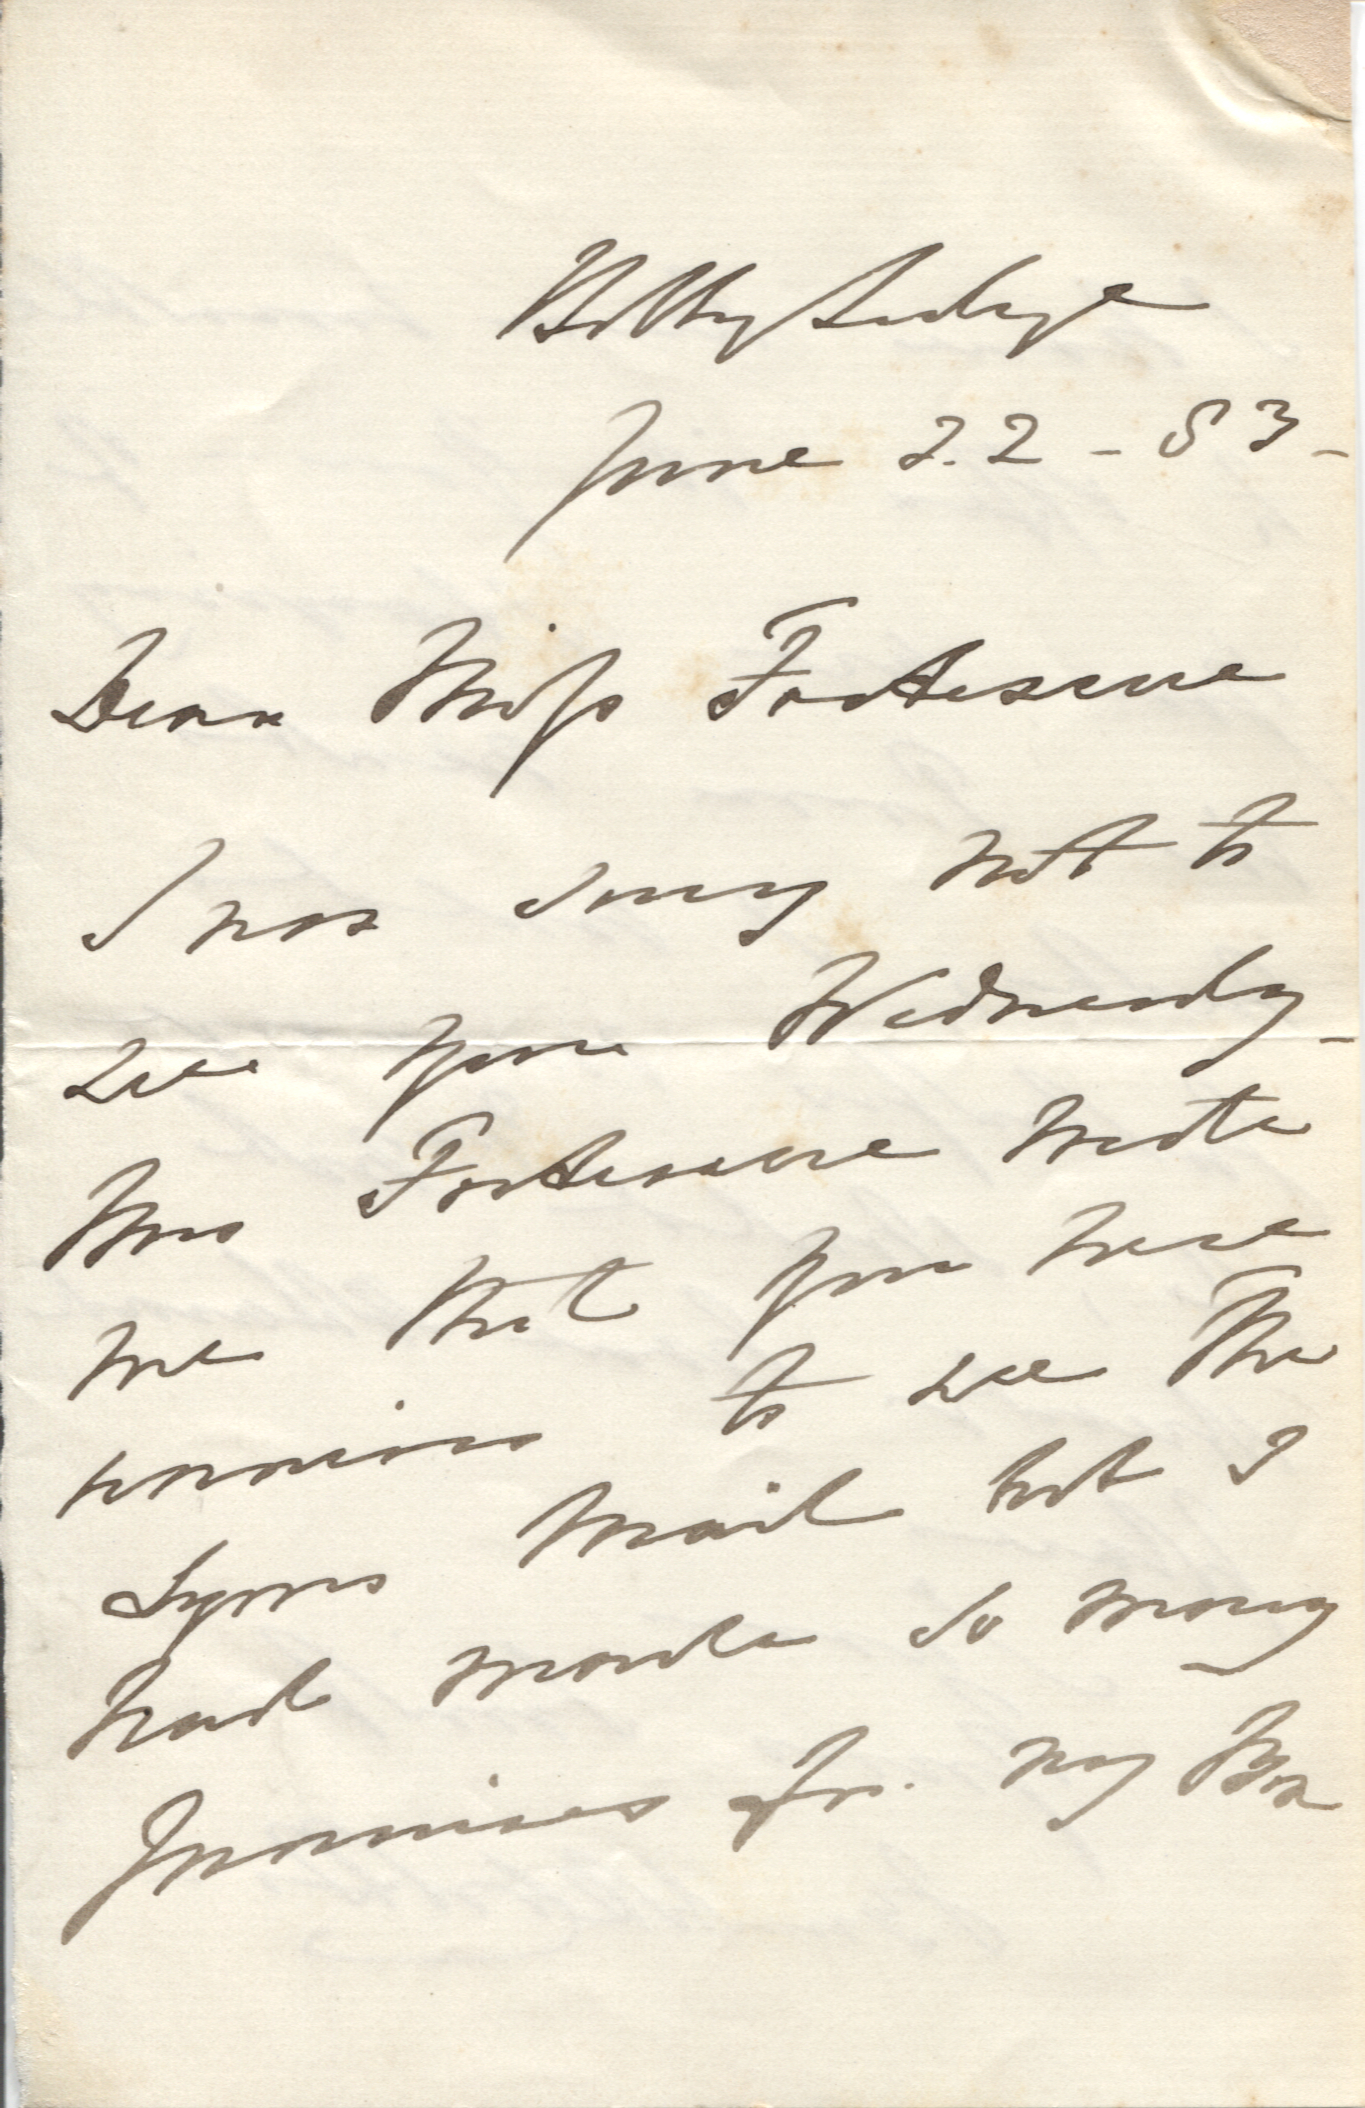 Holly Lodge
June 22 - 83 -
Dear Miss Fortescue
I was sorry not to
see you Wednesday -
Mrs Fortescue wrote
me that you were
anxious to see the
Lyons Mail but I
had made so many
promises for my Box